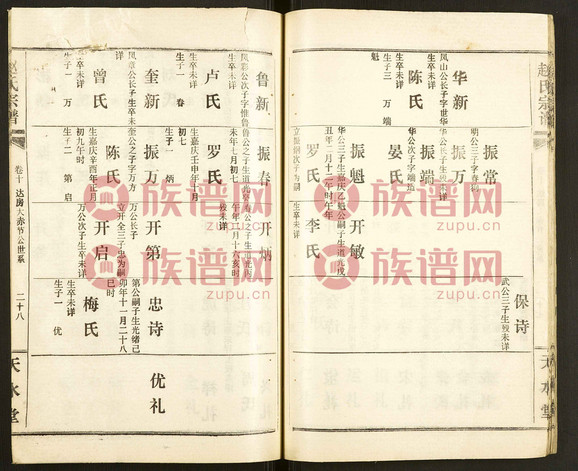 赵氏宗谱
天水堂
华新
凤山公长子字世华
生卒未详
陈氏
生卒未详
生子三 万 端
魁
振常
明公三子字春
振万
华公长子
生卒未详
振端
华公次子字端
晏氏
振魁
华公三子生嘉庆乙
丑年二月十二时午年
罗氏
开敏
魁公嗣子生道光戌
李氏
生卒未详
保诗
武公三子生殁未详
鲁新
凤彩公次子字惟鲁
生卒未详
卢氏
生卒未详
生子一 春
奎新
凤章公长子生卒未
详
曾氏
生卒未详
生子一 万
振春
鲁公之子生道光癸
未年七月初七
罗氏
生嘉庆壬申年十月
初七
生子一 炳
振万
奎公之子字万方
生卒未详
陈氏
生嘉庆辛酉年正月
初九午时
生子二 第 启
开炳
午年二月十六亥时
殁未详
开第
万公长子
立开全三子忠为嗣
开启
万公次子生卒未详
忠诗
第公嗣子生光绪己
卯年十一月二十八
巳时
梅氏
生卒未详
生子一 优
优礼
赵氏宗谱
卷十 达房大赤节公世系
二十八
天水堂
族谱网
zupu.cn
族谱网
zupu.cn
族谱网
zupu.cn
族谱网
zupu.cn